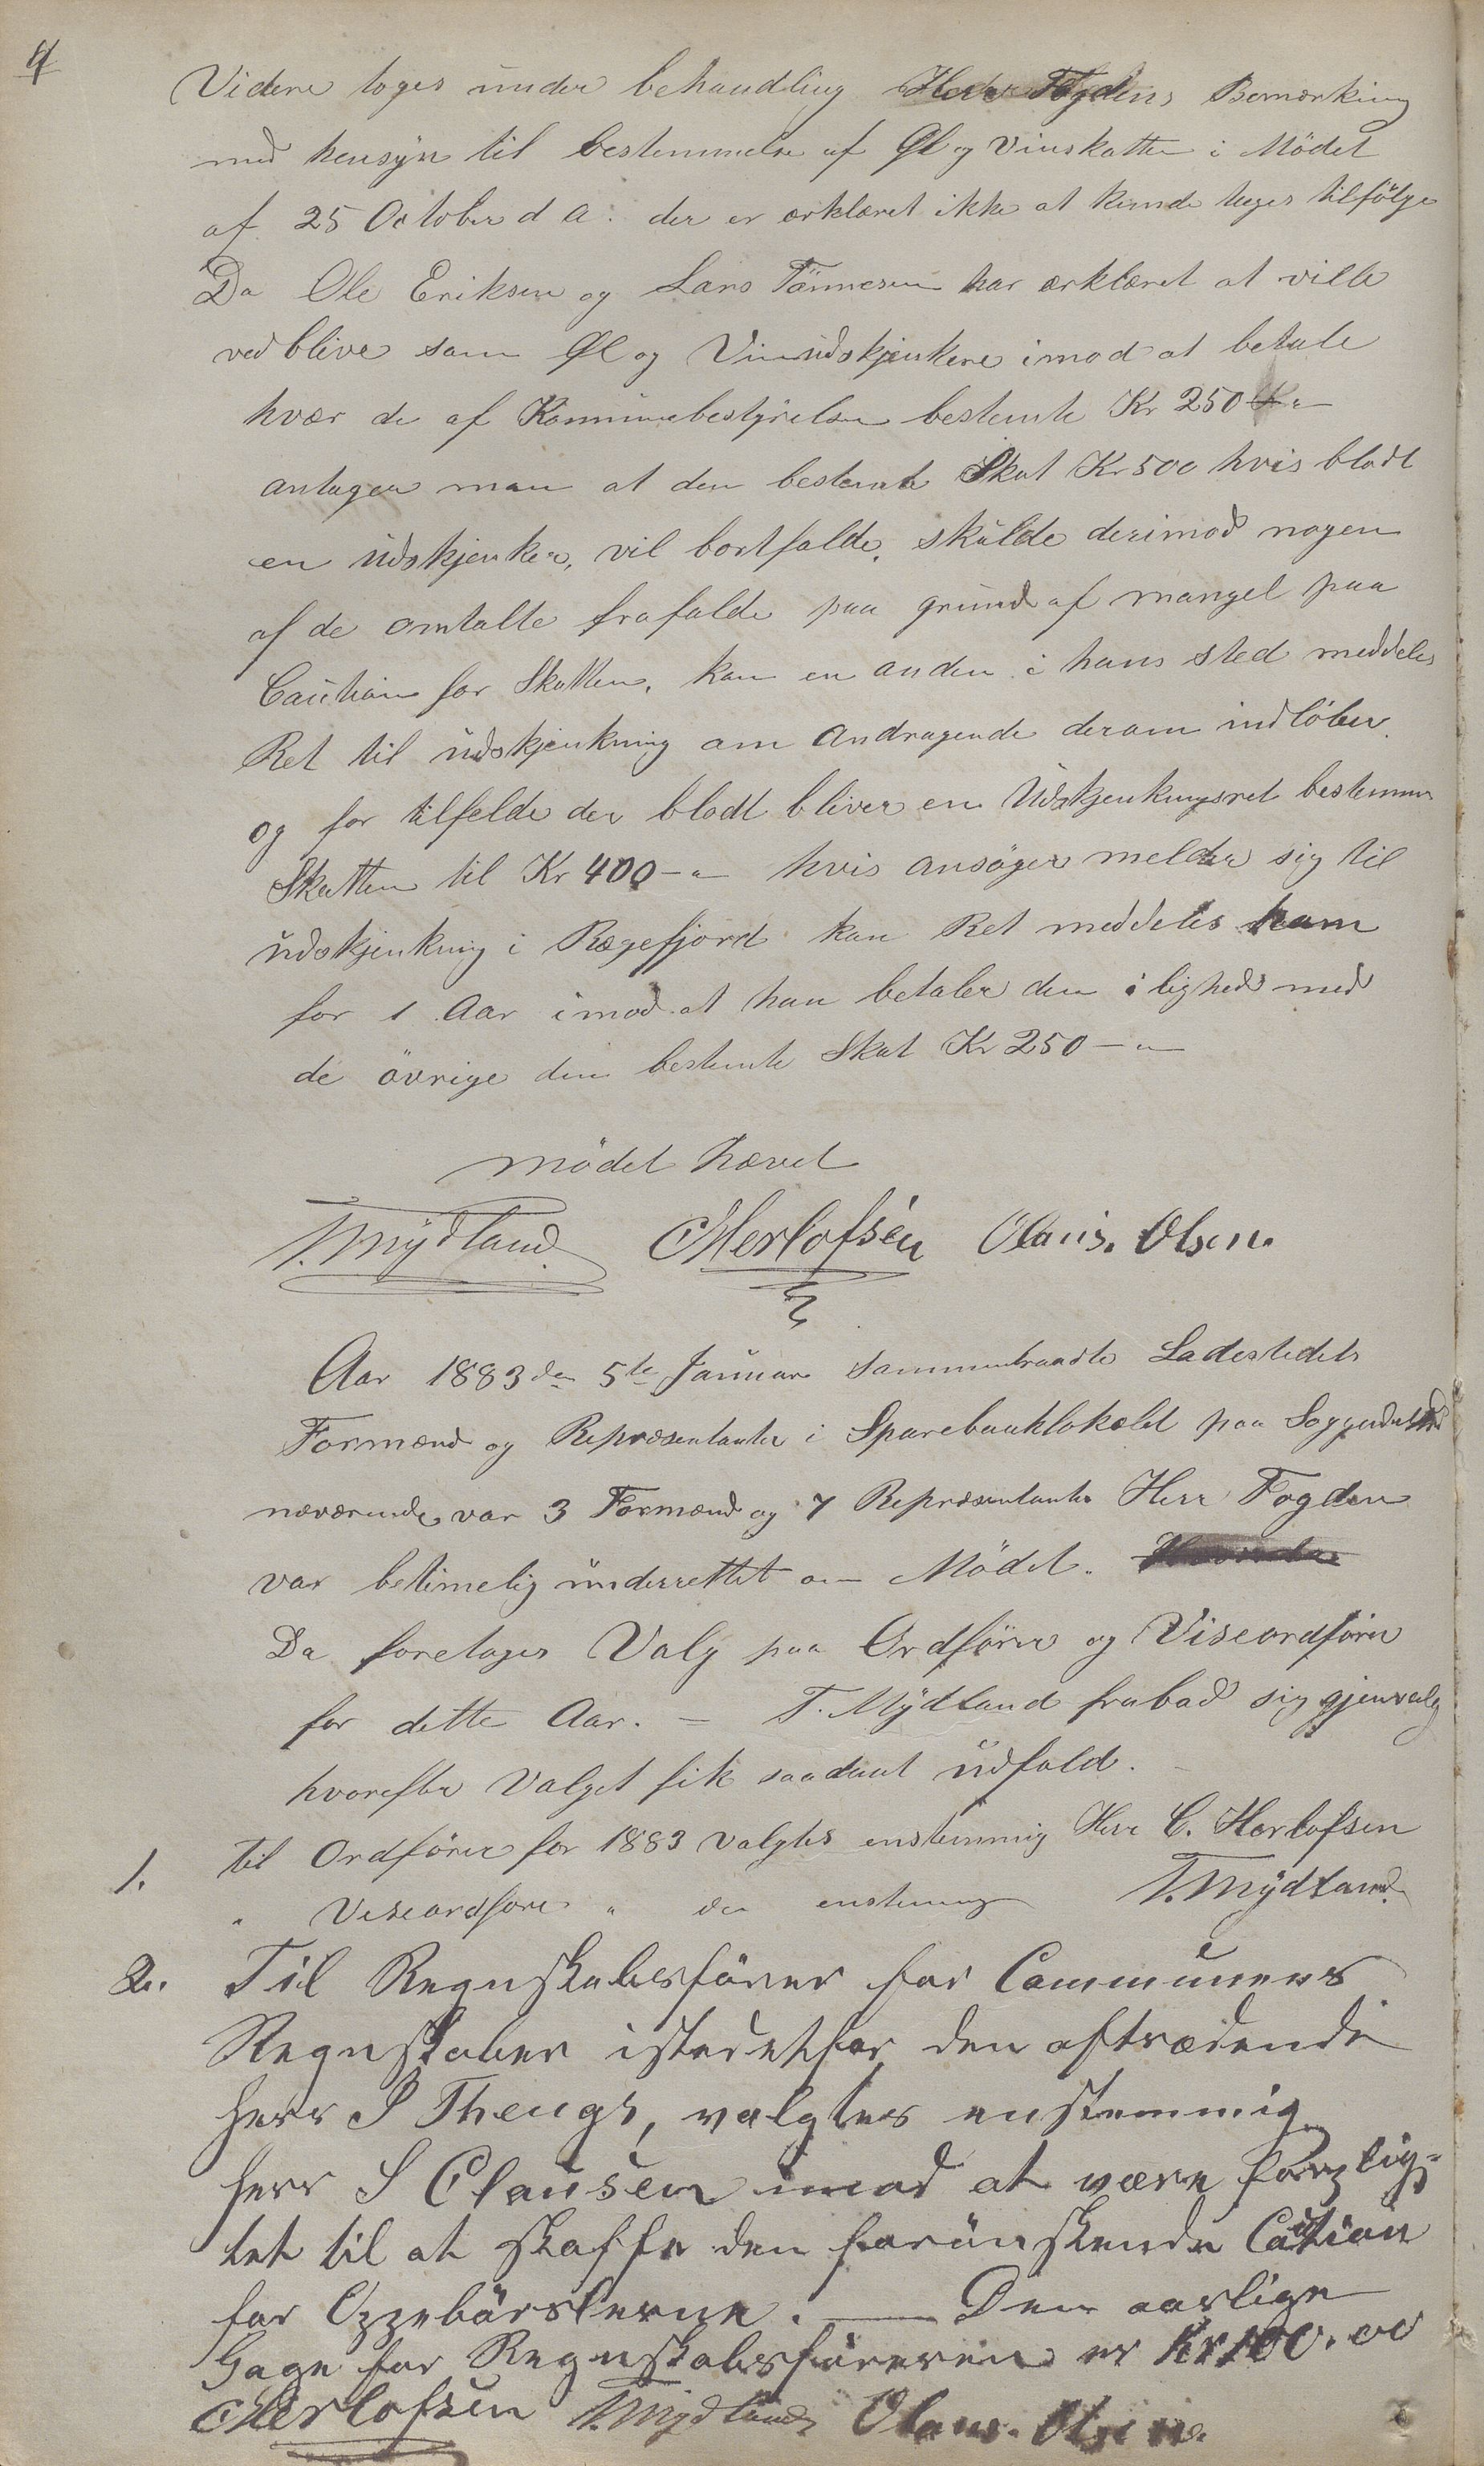 4
Videre toges under behandling Herr Fogdens Bemærkning
med hensyn til bestemmelse af Øl og Vinskatten i Mödet
af 25 October d A. der er ærklæret ikke at kunde tages tilfölge
Da Ole Eriksen og Lars Tönnesen har ærklæret at ville
vedblive som Øl og Vinudskjenkere imod at betale
hvær de af Komunebestyrelsen bestemte Kr 250
antager man at den bestemte Skat Kr 500 hvis blodt
en udskjenker, vil bortfalde, skulde derimod nogen
af de omtalte frafalde paa grund af mangel paa
Caution for Skatten, kan en anden i hans sted meddeles
Ret til udskjenkning om Andragende derom indlöber.
og for tilfelde der blodt bliver en Udskjenkningsret bestemmes
Skatten til Kr 400 - " hvis ansöger melder sig til
udskjenkning i Rægefjord kan Ret meddeles ham
for 1 Aar imod at han betaler den i lighed med
de övrige den bestemte Skat Kr 250 - "
Mödet hævet
T. Mydland CHerlofsen Olaus. Olsen.
Aar 1883 den 5te Januar sammentraadte Ladestedets
Formænd og Repræsentanter i Sparebanklokalet paa Soggendal
nærværende var 3 Formænd og 7 Repræsentanter Herr Fogden
var betimelig underrettet om Mödet.
Da foretoges Valg paa Ordförer og Viseordförer
for dette Aar. - T. Mydland frabad sig gjenvalg
hvorefter Valget fik saadant udfald.
1. til Ordförer for 1883 valgtes enstemmig Herr C. Herlofsen
" Viseordförer " do enstemmig T. Mydland.
2. Til Regnskabsförer for Communens
Regnskaber istedetfor den aftrædende
Herr S Thengs, valgtes enstemmig
Herr S Clausen imod at være forplig-
tet til at skaffe den forönskende Caution
for Oppebörslerne. — Den aarlige
Gage for Regnskabsföreren er Kr 100.00
CHerlofsen T. Mydland Olaus. Olsen.